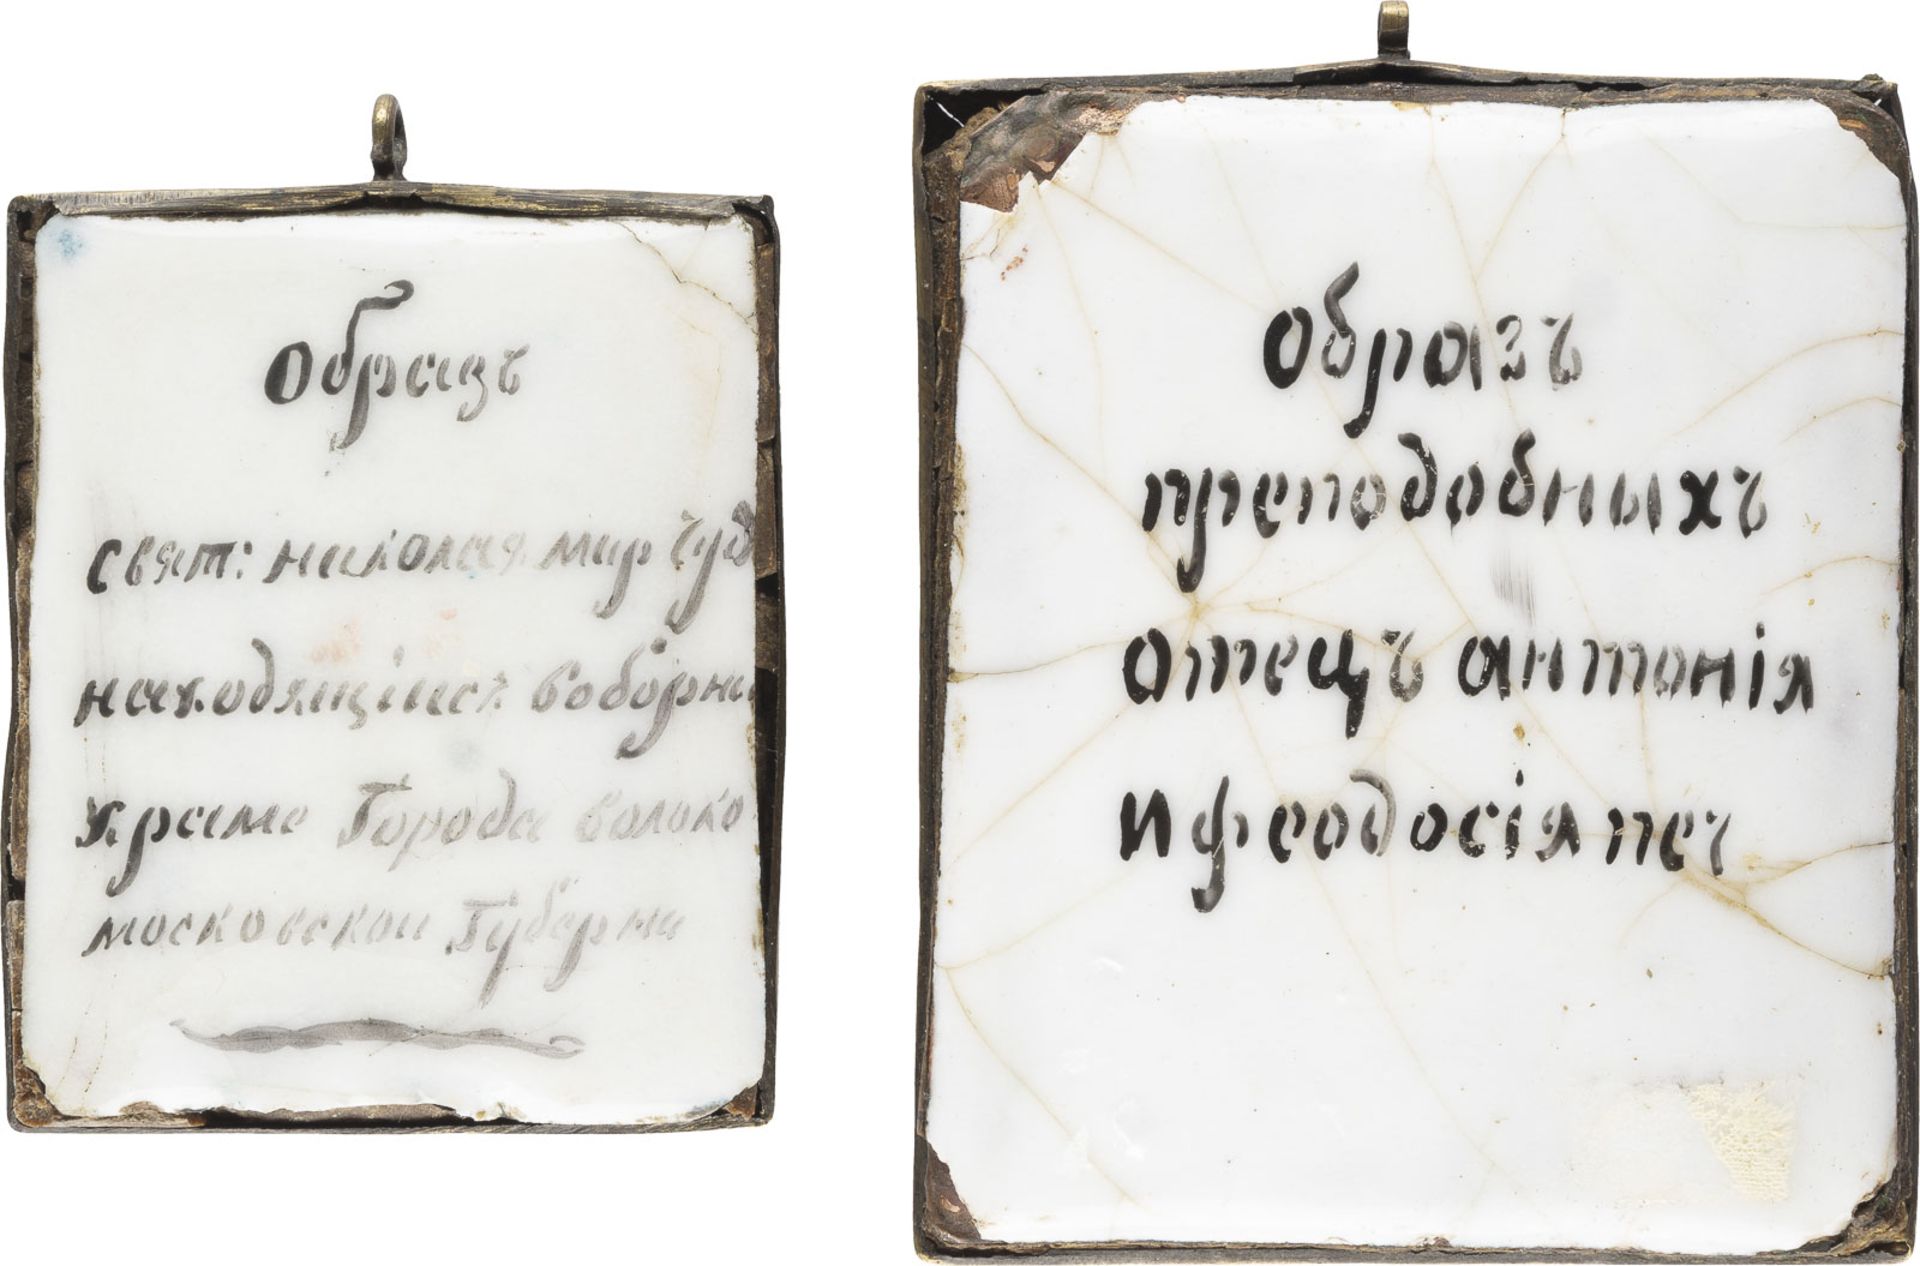 Образъ
свят: николая мир чуд
находящійсъ воборн
храме Города волоко
московскои Губерни
Образъ
преподобныхъ
отецъ антонія
и феодосія печ